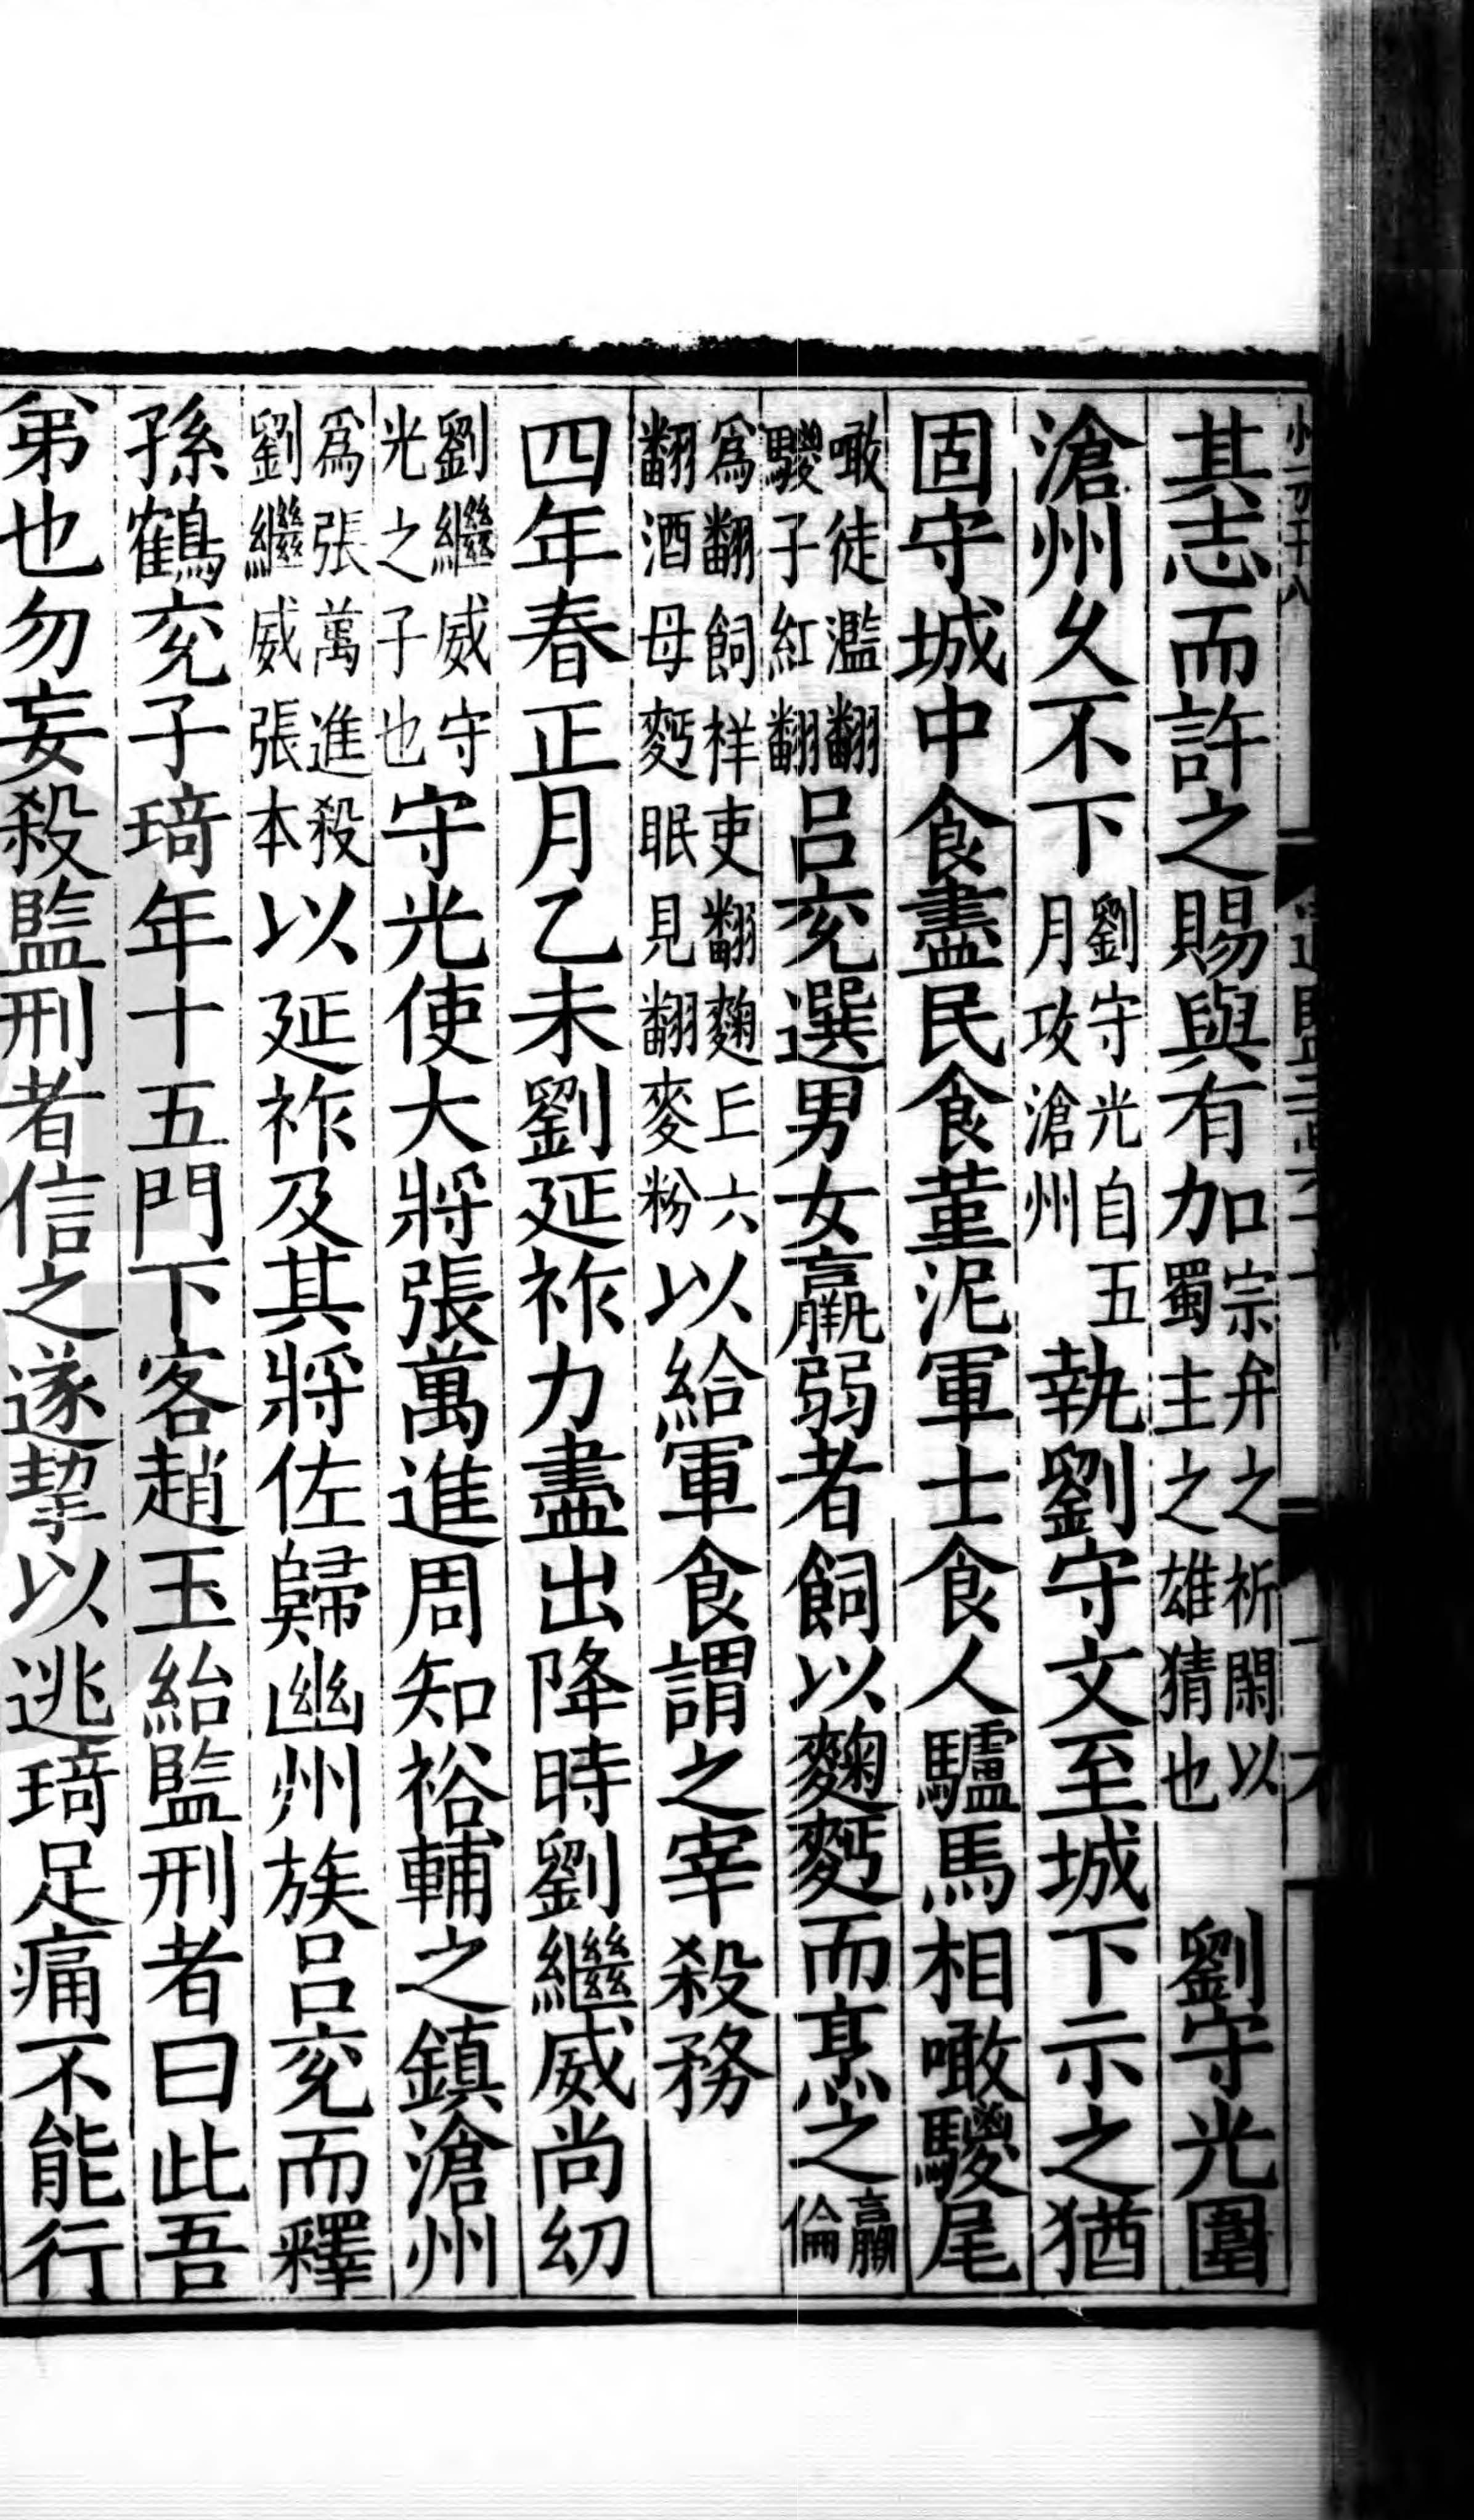 其志而許之賜與有加宗弁之祈閑以蜀主之雄猜也劉守光圍
滄州乆不下劉守光自五月攻滄州執劉守文至城下示之猶
固守城中食盡民食菫泥軍士食人驢馬相噉騣尾
噉徒濫翻騣子紅翻呂兖選男女羸弱者飼以麴麪而烹之羸倫
爲翻飼祥吏翻麴丘六翻酒母麪眠見翻麥粉以給軍食謂之宰殺務
四年春正月乙未劉延祚力盡出降時劉繼威尚幼
劉繼威守光之子也守光使大將張萬進周知裕輔之鎮滄州
爲張萬進殺劉繼威張本以延祚及其將佐歸幽州族呂兖而釋
孫鶴兖子琦年十五門下客趙玉紿監刑者曰此吾
弟也勿妄殺監刑者信之遂挈以逃琦足痛不能行